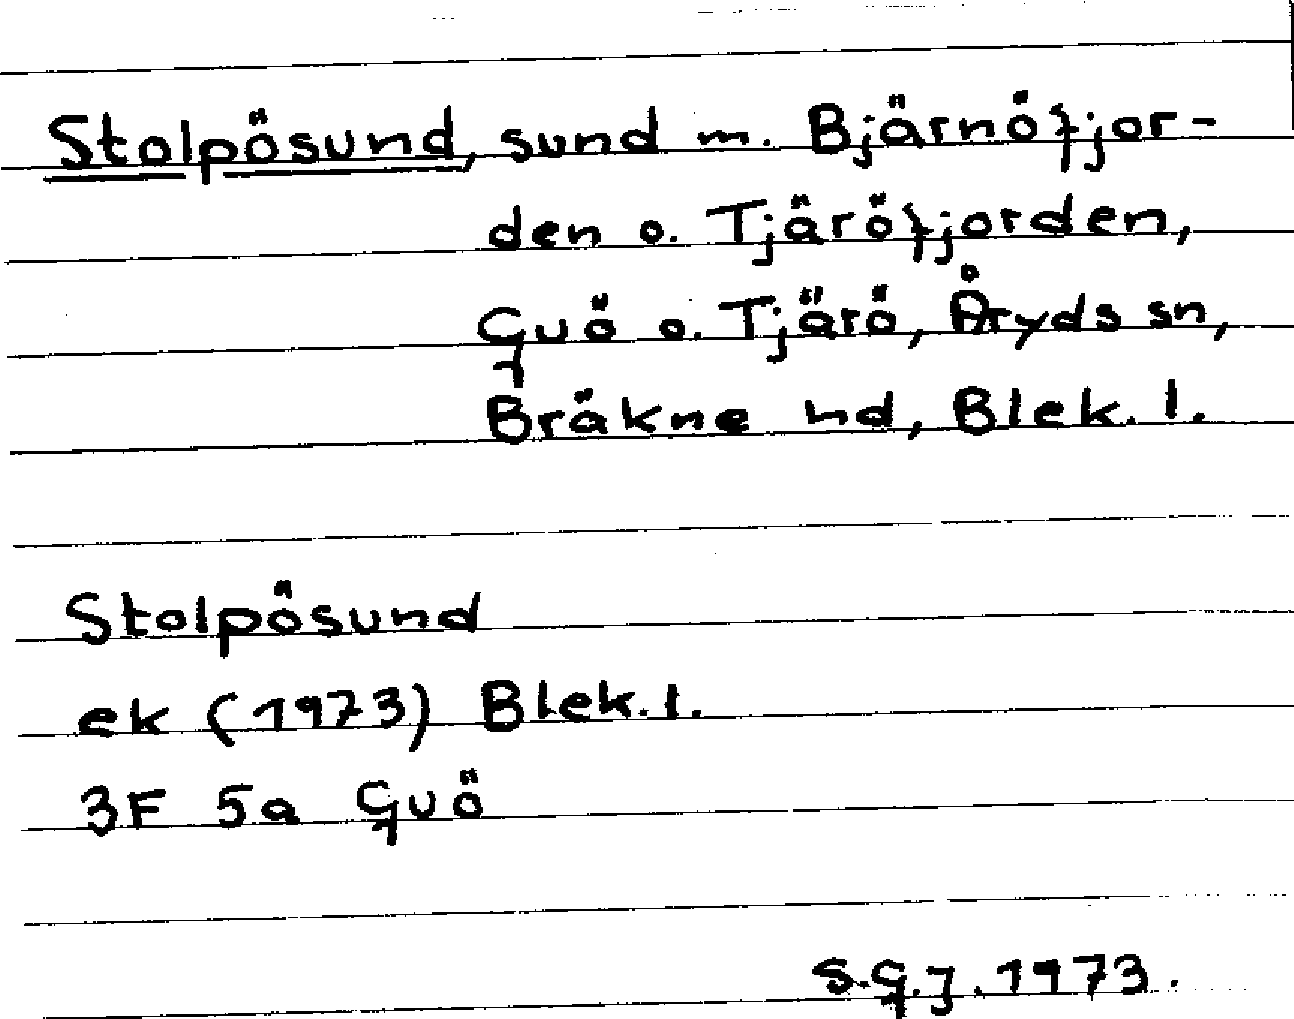 Stolpösund, sund m. Bjärnöfjor-
den o. Tjäröfjorden,
Guö o. Tjärö, Åryds sn,
Bräkne hd, Blek. l.
Stolpösund
ek (1973) Blek. l.
3F 5a Guö
S.G.J. 1973.